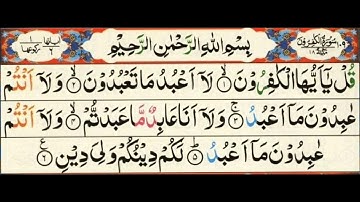 سُوْرَةُ الْكٰفِرُوْنَ ١٠٩
بِسْمِ اللّٰهِ الرَّحْمٰنِ الرَّحِيْمِ
قُلْ يٰٓاَيُّهَا الْكٰفِرُوْنَ ١ لَآ اَعْبُدُ مَا تَعْبُدُوْنَ ٢ وَلَآ اَنْتُمْ
عٰبِدُوْنَ مَآ اَعْبُدُ ٣ وَلَآ اَنَا عَابِدٌ مَّا عَبَدْتُّمْ ٤ وَلَآ اَنْتُمْ
عٰبِدُوْنَ مَآ اَعْبُدُ ٥ لَكُمْ دِيْنُكُمْ وَلِيَ دِيْنِ ٦